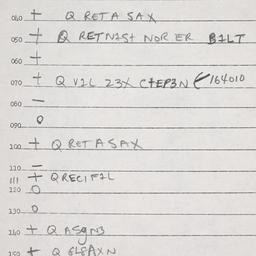 040 + Q RETA SAX
050 + Q RETN1St NOR ER B1LT
060 +
070 + Q V1L 23X CtEP3N 164010
080 —
090 O
100 + Q RETA SAX
110 —
111 + Q RECIF1L
120 O
130 O
140 + Q ASgN3
150 + Q GLFAXN